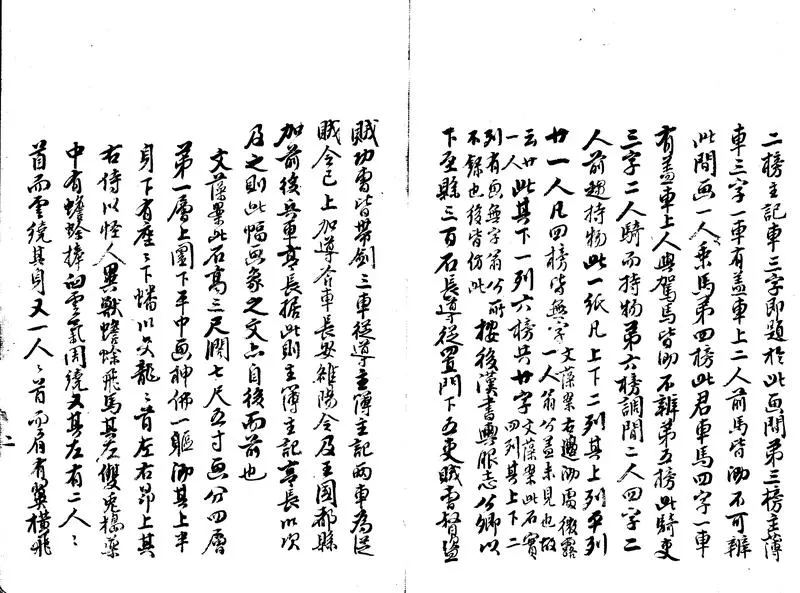 二榜主記車三字即題於此画間第三榜主薄
車三字一車有盖車上二人前馬皆泐不可辨
此間画一人乘馬第四榜此君車馬四字一車
有盖車上人與駕馬皆泐不辨第五榜此騎吏
三字二人騎而持物第六榜調間二人四字二
人前趨持物此一紙凡上下二列其上列平列
廿一人凡四榜皆無字一人翁公盖未見也故
文藻案右邊泐處微露
云廿一人此其下一列六榜共廿字
文藻案此石實四列其上下二
列有画無字翁公所不錄也後皆仿此
按後漢書輿服志公卿以
下至縣三百石長導從置門下五吏賊曹督盗
賊功曹皆帶劍三車從導主簿主記兩車為從
縣令已上加導斧車長安雒陽令及王國都縣
加前後兵車亭長據此則主簿主記亭長以次
及之則此幅画象之文亦自後而前也
文藻案此石高三尺濶七尺五寸画分四層
第一層上圜下平中画神佛一軀泐其上半
身下有座〻下蟠以交龍〻首左右昂上其
右侍以怪人異獸蟾蜍飛馬其左雙兎擣藥
中有蟾蜍捧臼雲氣周繞又其左有二人〻
首而雲繞其身又一人〻首而肩有翼横飛